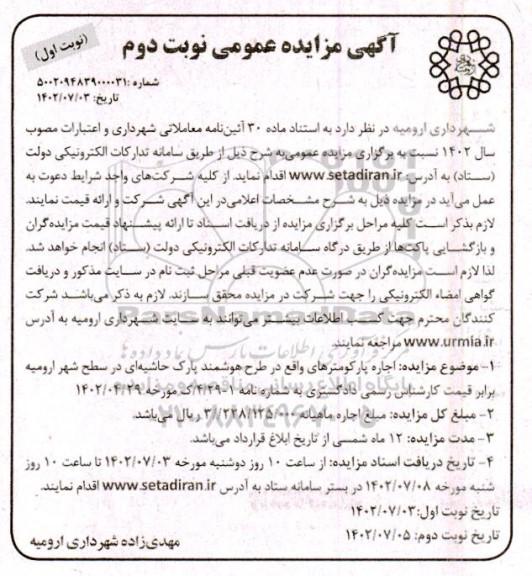 آگهی مزایده عمومی نوبت دوم
(نوبت اول)
شماره: ۵۰۰۲۰۹۴۸۳۹۰۰۰۰۳۱
تاریخ: ۱۴۰۲/۰۷/۰۳
شهرداری ارومیه در نظر دارد به استناد ماده ۳۰ آئین‌نامه معاملاتی شهرداری و اعتبارات مصوب
سال ۱۴۰۲ نسبت به برگزاری مزایده عمومی‌به شرح ذیل از طریق سامانه تدارکات الکترونیکی دولت
(ستاد) به آدرس: www.setadiran.ir اقدام نماید. از کلیه شرکت‌های واجد شرایط دعوت به
عمل می‌آید در مزایده ذیل به شرح مشخصات اعلامی‌در این آگهی شرکت و ارائه قیمت نمایند.
لازم بذکر است کلیه مراحل برگزاری مزایده از دریافت اسناد تا ارائه پیشنهاد قیمت مزایده‌گران
و بازگشایی پاکت‌ها از طریق درگاه سامانه تدارکات الکترونیکی دولت (ستاد) انجام خواهد شد.
لذا لازم است مزایده‌گران در صورت عدم عضویت قبلی مراحل ثبت نام در سایت مذکور و دریافت
گواهی امضاء الکترونیکی را جهت شرکت در مزایده محقق سازند. لازم به ذکر می‌باشد شرکت
کنندگان محترم جهت کسب اطلاعات بیشتر می‌توانند به سایت شهرداری ارومیه به آدرس
www.urmia.ir مراجعه نمایند.
۱- موضوع مزایده: اجاره پارکومترهای واقع در طرح هوشمند پارک حاشیه‌ای در سطح شهر ارومیه
برابر قیمت کارشناس رسمی دادگستری به شماره نامه ۱-۴/۲۹ک مورخه ۱۴۰۲/۰۴/۲۹
۲- مبلغ کل مزایده: مبلغ اجاره ماهیانه ۳/۲۲۸/۱۲۵/۰۰۰ ریال می‌باشد.
۳- مدت مزایده: ۱۲ ماه شمسی از تاریخ ابلاغ قرارداد می‌باشد.
۴- تاریخ دریافت اسناد مزایده: از ساعت ۱۰ روز دوشنبه مورخه ۱۴۰۲/۰۷/۰۳ تا ساعت ۱۰ روز
شنبه مورخه ۱۴۰۲/۰۷/۰۸ در بستر سامانه ستاد به آدرس www.setadiran.ir اقدام نمایند.
تاریخ نوبت اول: ۱۴۰۲/۰۷/۰۳
تاریخ نوبت دوم: ۱۴۰۲/۰۷/۰۵
مهدی‌زاده شهرداری ارومیه